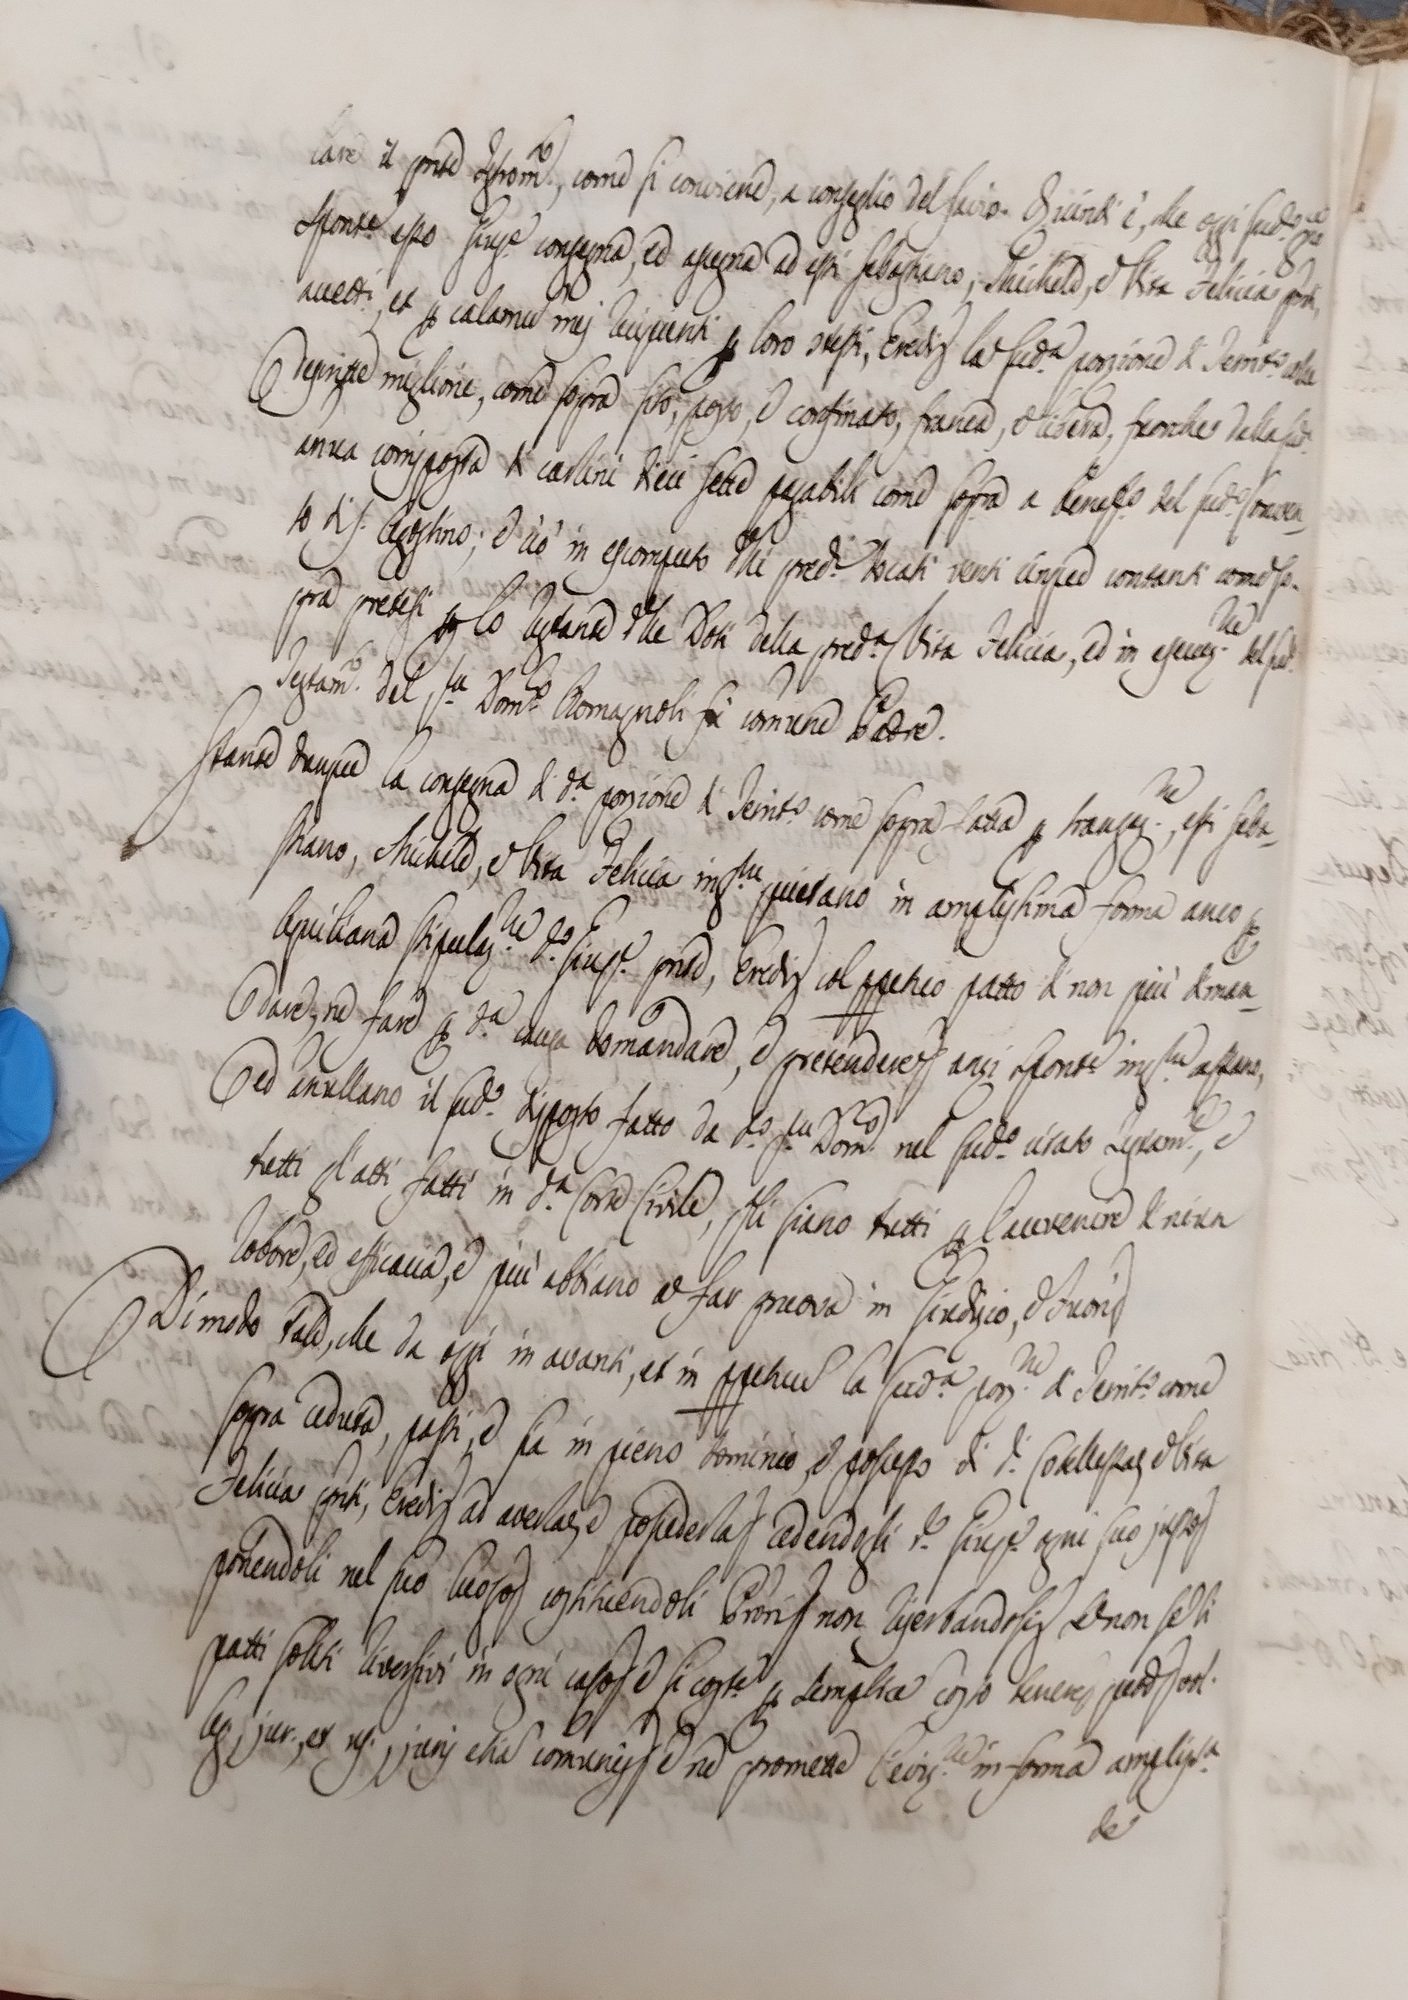 lare il pnte Istrom.to, come si conviene, a conseglio del savio. Quindi è, che oggi sud.o
sponte esso Gius.e consegna, ed assegna ad essi Sebastiano, Michele, e Vita Felicia pnti,
accett.i, et p calamu mej recipienti p loro stessi, Eredi la sud.a porzione di Territ.o colle
descritte migliorie, come sopra sito, posto, e confinato, franca, e libera, fuorche della sud.a
annua corrisposta di carlini dieci sette pagabili come sopra a benef.o del sud.o Conven-
to di S. Agostino; e ciò in escomputo delli pred.i docati venti cinque contanti come so-
pra pretesi p lo restante delle Doti della pred.a Vita Felicia, ed in esecuz.ne del sud.o
Testam.to del fu Dom.co Romagnoli fù comune Padre.
Stante dunque la consegna di d.a porzione di Territ.o come sopra fatta p transaz.ne, essi Seba-
stiano, Michele, e Vita Felicia ins.lu quietano in amplissima forma anco p
Aquiliana stipulaz.ne d.o Gius.e pnte, Eredi col ppetuo patto di non più diman-
dare, ne fare p d.a causa domandare, e pretendere anzi sponte ins.lu cassano,
ed anullano il sud.o disposto fatto da d.o fu Dom.co nel sud.o citato Testam.to, e
tutti gl'atti fatti in d.a Corte Civile, quali siano tutti p l'avvenire di niun
robore, ed efficacia, e più abbiano a far pruova in Giudizio, e fuori
Di modo tale, che da oggi in avanti, et in ppetuu la sud.a porz.ne di Territ.o come
sopra ceduta, passi, e sia in pieno dominio, e possesso di d.i e Vita
Felicia pnti, Eredi ad averla, e possederla cedendogli d.o Gius.e ogni suo jus
ponendoli nel suo luogo costituendoli non riserbandosi e non se li
patti soliti in ogni caso e si cost.e p semplice
leg, jur., et juris etiã comunis e ne promette l'eviz.ne in forma amplis.a
de